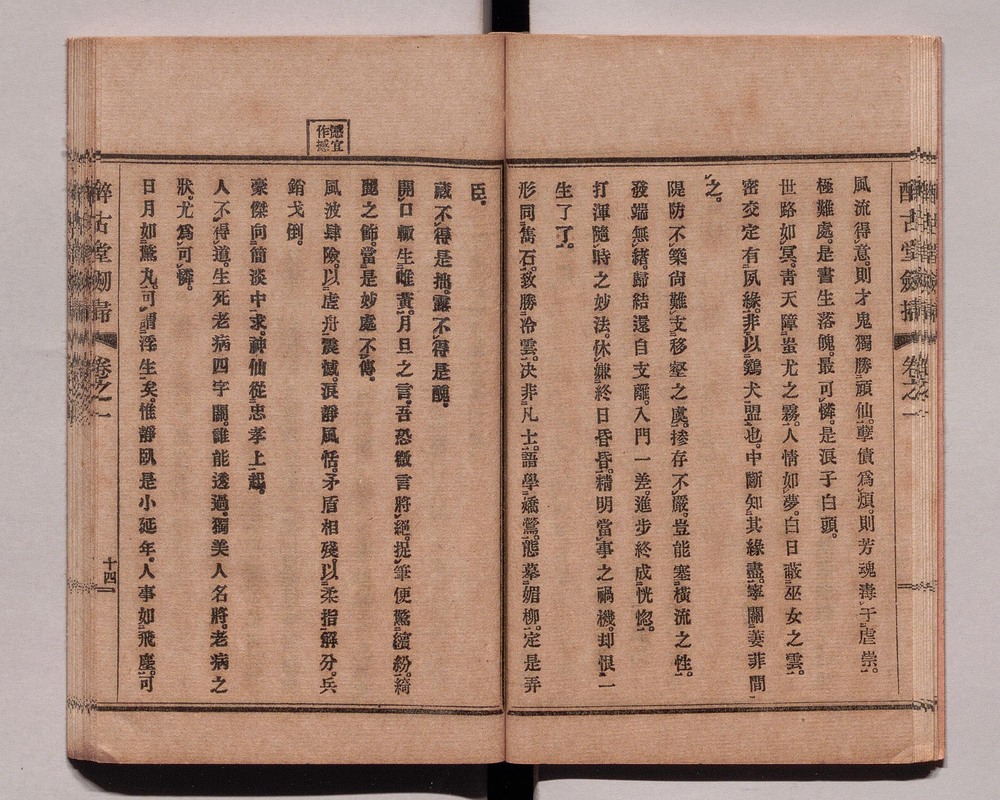 風流得意。則才鬼獨勝頑仙。孽債爲煩。則芳魂毒于虐祟。
極難處。是書生落魄。最可憐。是浪子白頭。
世路如冥。靑天障蚩尤之霧。人情如夢。白日蔽巫女之雲。
密交定有夙緣。非以鷄犬盟也。中斷知其緣盡。寧關萋菲間
之。
隄防不築。尙難支移壑之虞。操存不嚴。豈能塞橫流之性。
發端無緒。歸結還自支離。入門一差。進步終成恍惚。
打渾隨時之妙法。休嫌終日昏昏。精明當事之禍機。却恨一
生了了。
形同雋石。致勝冷雲。決非凡士。語學嬌鶯。態摹媚柳。定是弄
臣。
藏不得是拙。露不得是醜。
開口輒生雌黃。月旦之言。吾恐微言將絕。捉筆便驚繽紛。綺
麗之飾。當是妙處不傳。
風波肆險。以虛舟震憾。浪靜風恬。矛盾相殘。以柔指解分。兵
銷戈倒。
豪傑向簡淡中求。神仙從忠孝上起。
人不得道。生死老病四字關。誰能透過。獨美人名將。老病之
狀。尤爲可憐。
日月如驚丸。可謂浮生矣。惟靜臥是小延年。人事如飛塵。可
憾宜
作撼
醉古堂劒掃
卷之一
十四